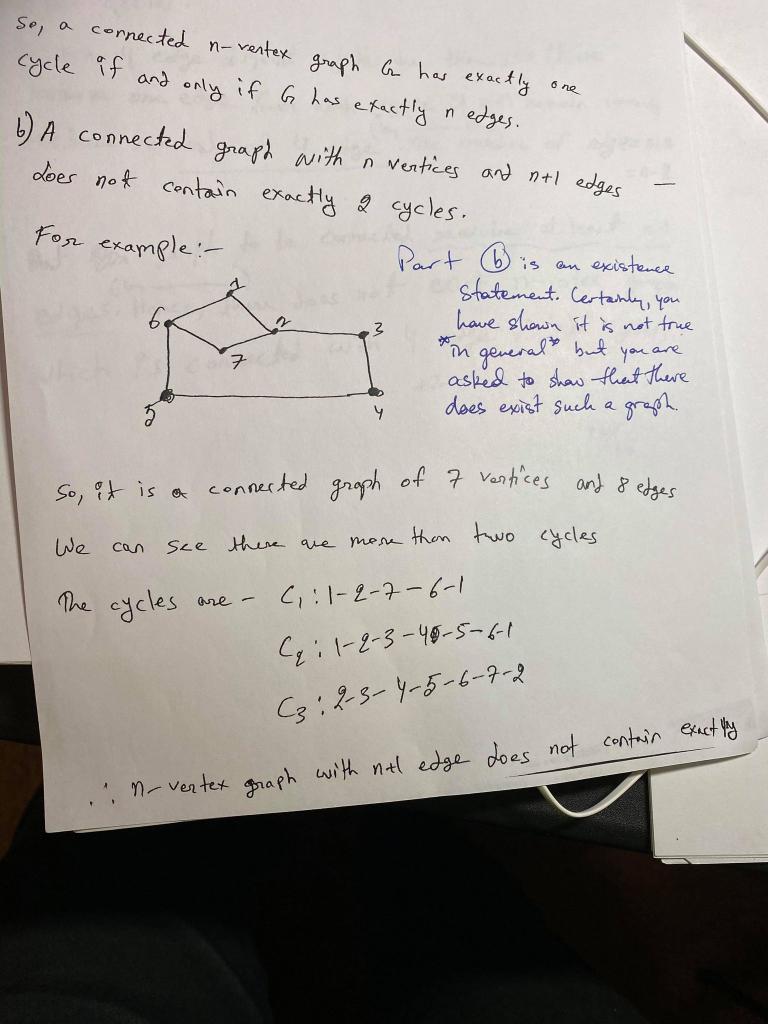 So, a connected n-vertex graph G has exactly one
cycle if and only if G has exactly n edges.
b) A connected graph with n vertices and n+1 edges —
does not contain exactly 2 cycles.
For example:-
Part (b) is an existence
statement. Certainly, you
have shown it is not true
*in general* but you are
asked to show that there
does exist such a graph.
1
6
2
3
7
5
4
So, it is a connected graph of 7 vertices and 8 edges
We can see there are more than two cycles
The cycles are - C₁ : 1-2-7-6-1
C₂ : 1-2-3-4-5-6-1
C₃ : 2-3-4-5-6-7-2
∴ n-vertex graph with n+1 edge does not contain exactly